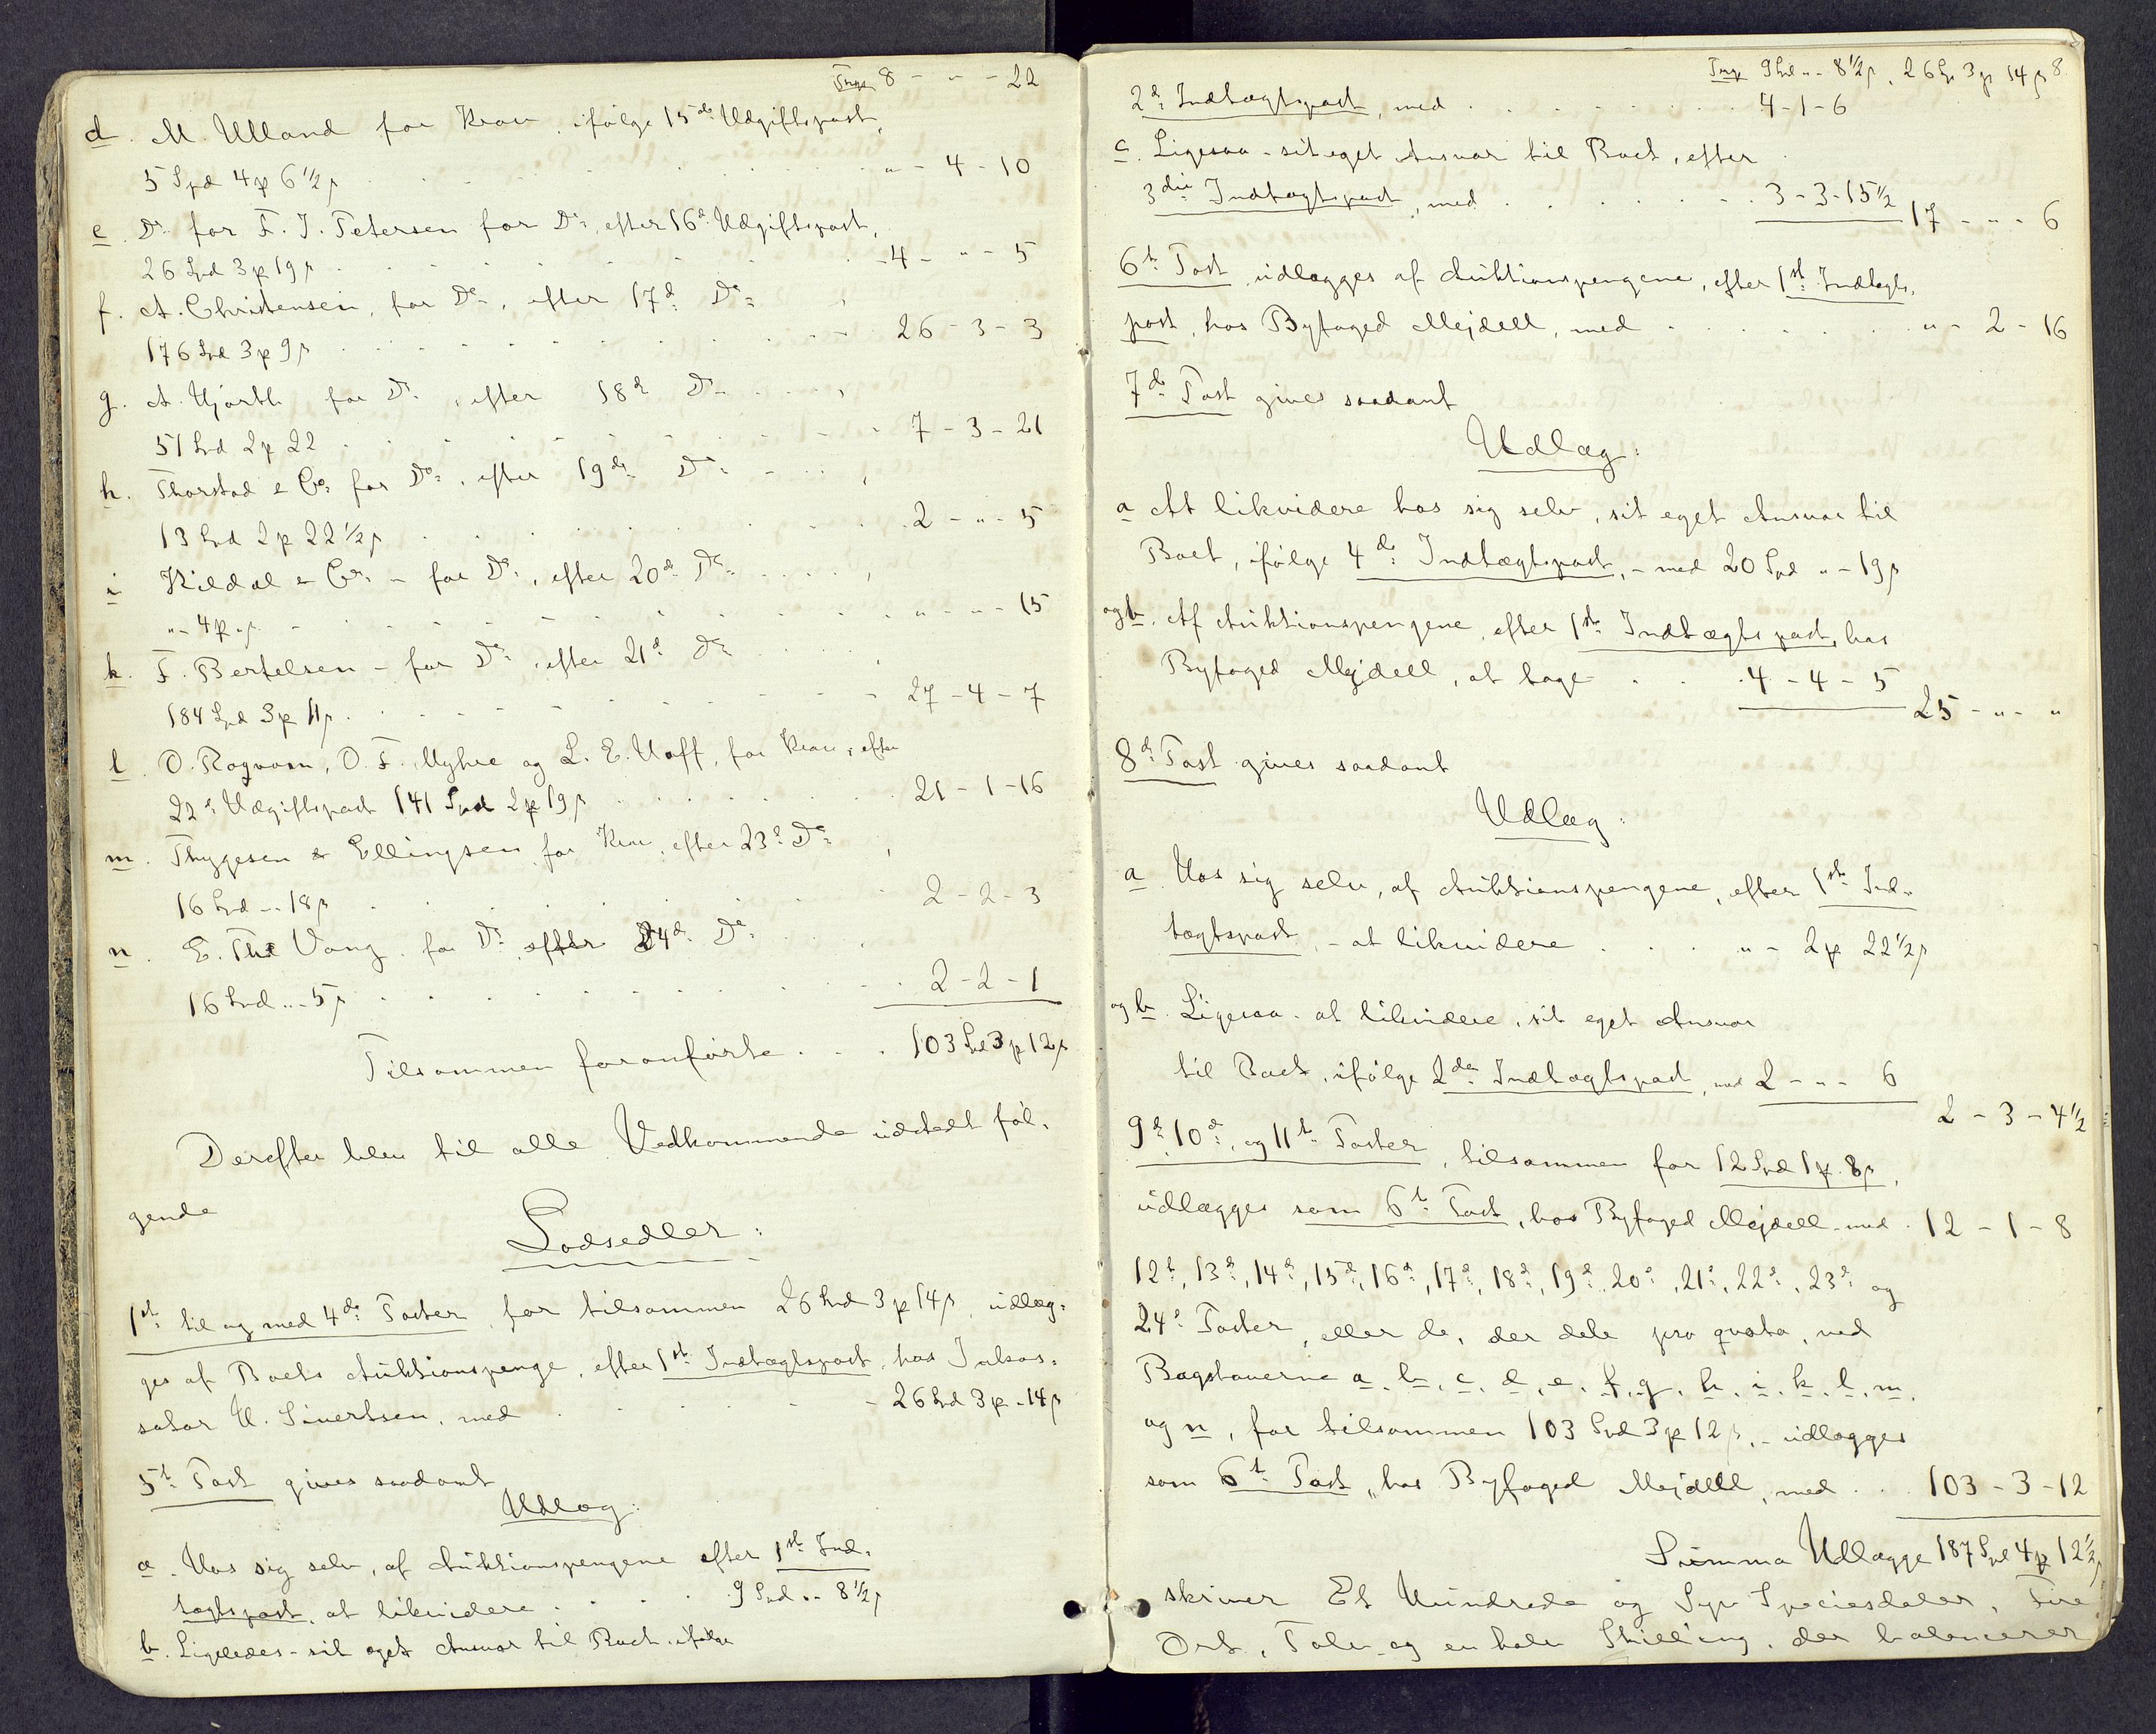 Trsp 8 - " - 22
d. M. Ulland for Krav, ifølge 15de Udgiftspost,
5 Spd 4 # 6 1/2 ß . . . " - 4 - 10
e. Do for F. J. Petersen for Do, efter 16d Udgiftspost,
26 Spd 3 # 19 ß . . . 4 - " - 5
f. A. Christensen, for Do, efter 17d Do,
176 Spd 3 # 9 ß . . . 26 - 3 - 3
g. A. Hjorth for Do, efter 18d Do . . ,
51 Spd 2 # 22 . . . 7 - 3 - 21
h. Thorstad & Co: for Do, efter 19de Do - . . ,
13 Spd 2 # 22 1/2 ß . . . 2 - " - 5
i Kildal & Co: - for Do, efter 20d Do . . . ,
" - 4 # " ß . . . " - " - 15
k. F. Bertelsen - for Do, efter 21d Do . . . ,
184 Spd 3 # 11 ß . . . 27 - 4 - 7
l. O. Rogvam, O. F. Myhre og L. E. Hoff, for Krav, efter
22d Udgiftspost 141 Spd 2 # 19 ß . . . 21 - 1 - 16
m. Thygesen & Ellingsen for Krav, efter 23d Do ,
16 Spd " - 18 ß . . . 2 - 2 - 3
n. E. The Vang, for Do efter 24d Do . . ,
16 Spd " - 5 ß . . . 2 - 2 - 1
Tilsammen foranførte . . . 103 Spd 3 # 12 ß
Derefter blev til alle Vedkommende udstedt føl-
gende
Lodsedler:
1ste til og med 4de Poster, for tilsammen 26 Spd 3 # 14 ß, udlæg-
ges af Boets Auktionspenge, efter 1ste Indtægtspost, hos Inkas-
sator H. Sivertsen, med . . . 26 Spd 3 # - 14 ß
5t Post gives saadant
Udlæg:
a. Hos sig selv, af Auktionspengene efter 1ste Ind-
tægtspost, at likvidere . . . 9 Spd " - 8 1/2 ß
b. Ligeledes - sit eget Ansvar til Boet, ifølge
Trsp 9 Spd " - 8 1/2 ß. 26 Sp 3 # 14 ß
2d Indtægtspost, med . . . 4 - 1 - 6
c. Ligesaa - sit eget Ansvar til Boet, efter
3die Indtægtspost, med . . . 3 - 3 - 15 1/2 17 - " - 6
6te Post udlægges af Auktionspengene, efter 1ste Indtægts-
post, hos Byfoged Mejdell, med . . . " - 2 - 16
7de Post gives saadant
Udlæg:
a At likvidere hos sig selv, sit eget Ansvar til
Boet, ifølge 4de Indtægtspost, - med 20 Spd " - 19 ß
og b. Af Auktionspengene, efter 1ste Indtægtspost, hos
Byfoged Mejdell, at tage . . . 4 - 4 - 5 25 - " - "
8de Post gives saadant
Udlæg:
a. Hos sig selv, af Auktionspengene, efter 1ste Ind-
tægtspost, - at likvidere . . . " - 2 # 22 1/2 ß
og b. Ligesaa - at likvidere, sit eget Ansvar
til Boet, ifølge 2den Indtægtspost, med 2 - " - 6 2 - 3 - 4 1/2
9d, 10d, og 11te Poster, tilsammen for 12 Spd 1 # 8 ß,
udlægges som 6t Post, hos Byfoged Mejdell - med . 12 - 1 - 8
12t, 13d, 14d, 15d, 16d, 17d, 18d, 19d, 20d, 21d, 22d, 23d og
24d Poster, eller de, der dele pro qvota, ved
Bogstaverne a, b, c, d, e, f, g, h, i, k, l, m,
og n, for tilsammen 103 Spd 3 # 12 ß, - udlægges
som 6t Post, hos Byfoged Mejdell, med . . 103 - 3 - 12
Summa Udlægge 187 Spd 4 # 12 1/2 ß
skriver Et Hundrede og Syv Speciesdaler, Fire
Ort, Tolv og en halv Skilling, der balancerer